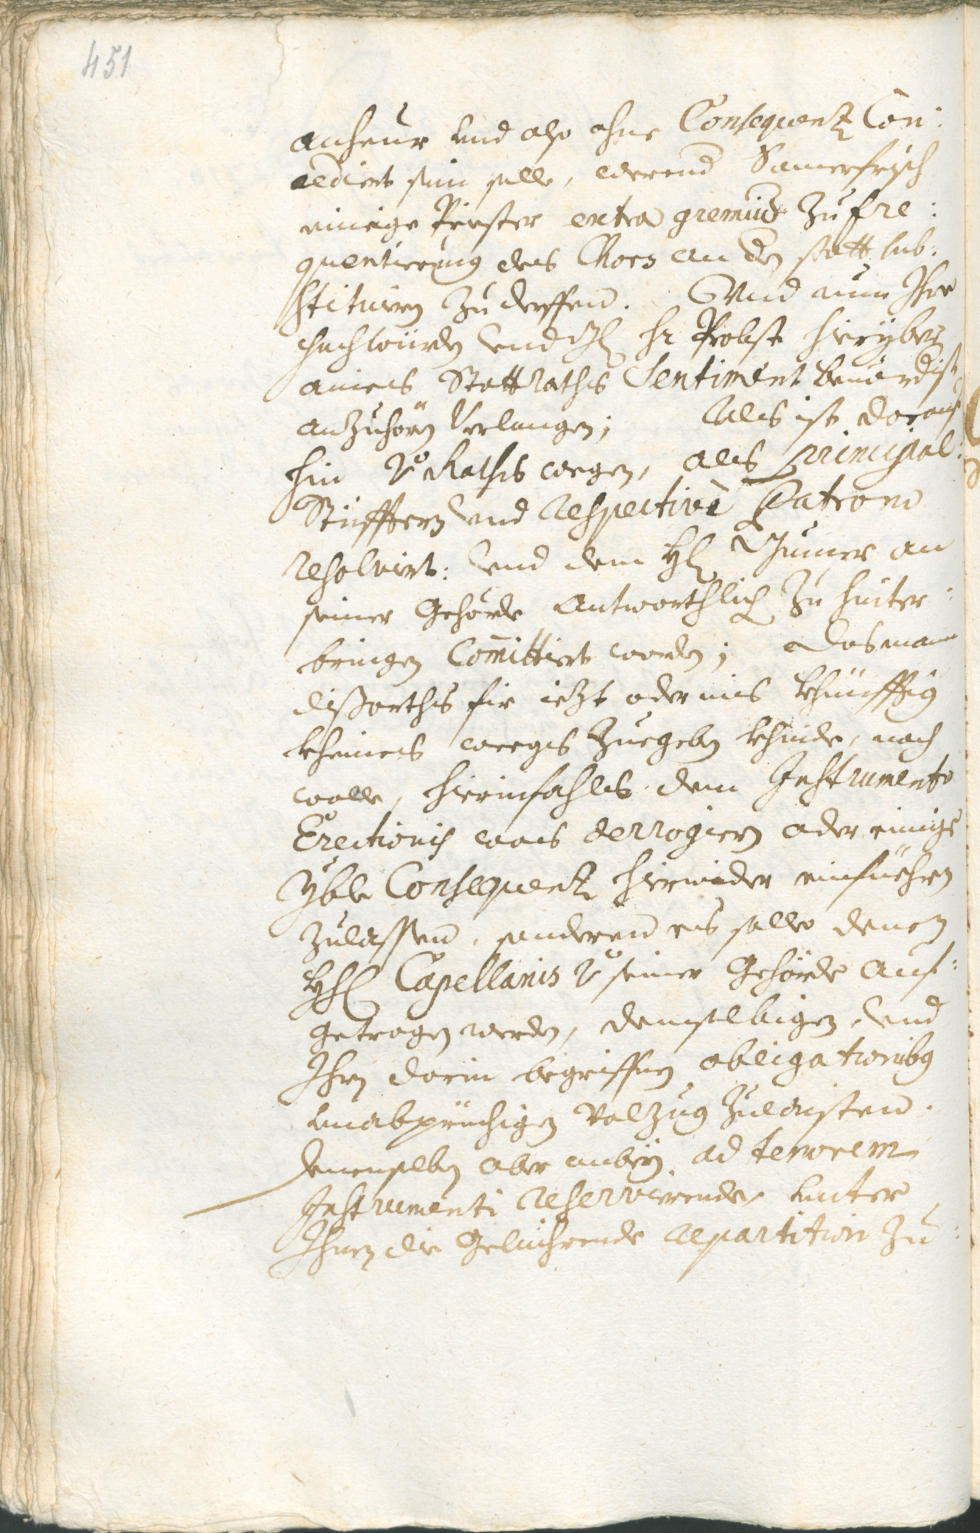 451
anheur und also ohne Consequenz Con:
cediert sein solle, werend Samerfrisch
einige Priester extra gremium zu fre:
quentierung des Chors an der statt sub:
stituiren zu derffen. Und nun Ihre
hochwürden und H hr Probst hieryber
aines Stattraths Sentiment bemerdist
anzuhören verlangen; Als ist darauf
hin v Raths wegen, als Principal
Stüfftern und respectivè Patronen
resolvirt: und dem H Thumer an
seiner Gehörde Antworthlich zu hinter:
bringen Comittiert worden; das man
dissorths für iezt oder ins khünfftig
kheines weegs zuegeben khinde, noch
wolle, hierinfahls dem Instrumento
Erectionis waas derrogiern oder einige
yble Consequenz hierwider einfüehren
zulassen, sonderen es solle denen
HH Capellanis v seiner Gehörde auf:
getragen werden, demselbigen, und
Ihren darin begriffnen obligationibus
unabprüchigen Volzug zulaisten.
denenselben aber anbey ad tenorem
Instrumenti reserverende, unter
Ihnen die Gebührende repartition zu: